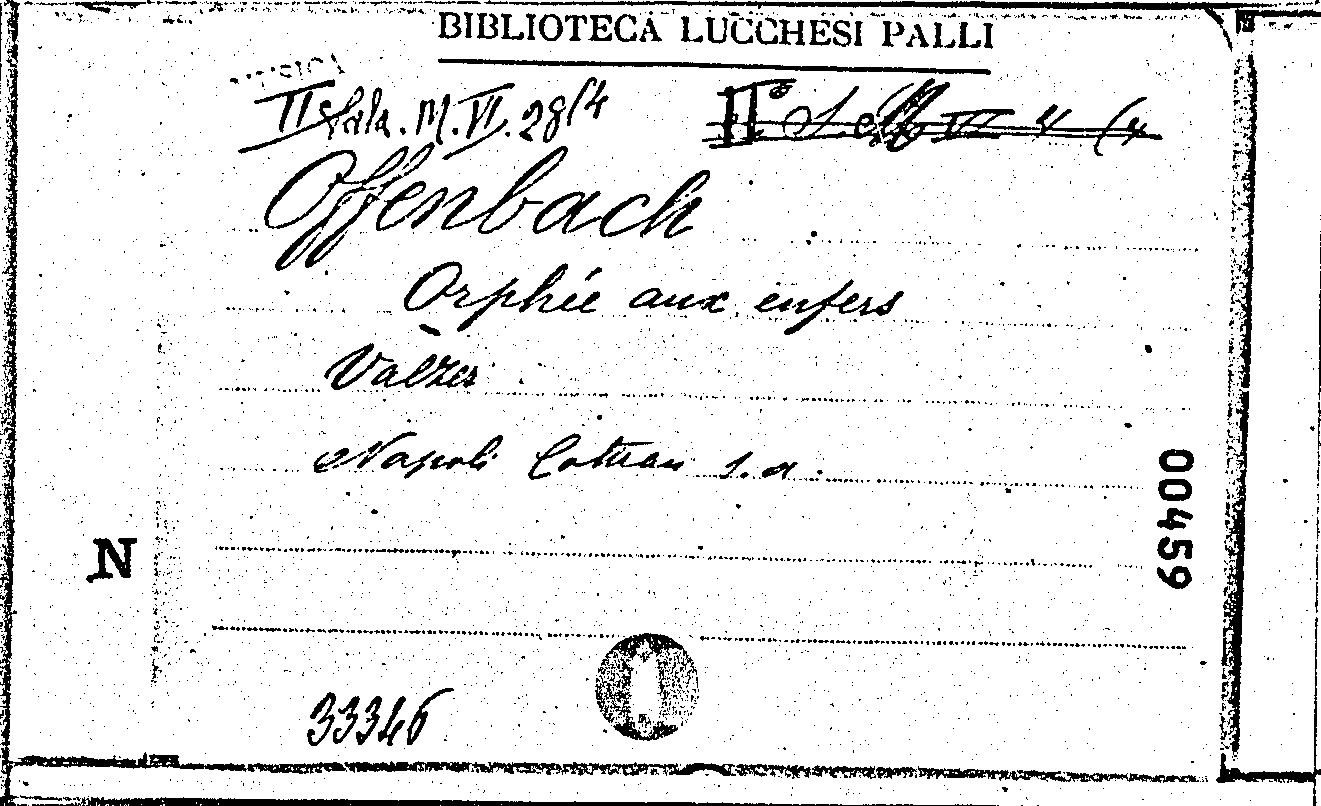 BIBLIOTECA LUCCHESI PALLI
MUSICA
II Sala. M. VI. 28/4
Offenbach
Orphée aux enfers
Valzer
Napoli Cottrau s. a.
00459
N
33346